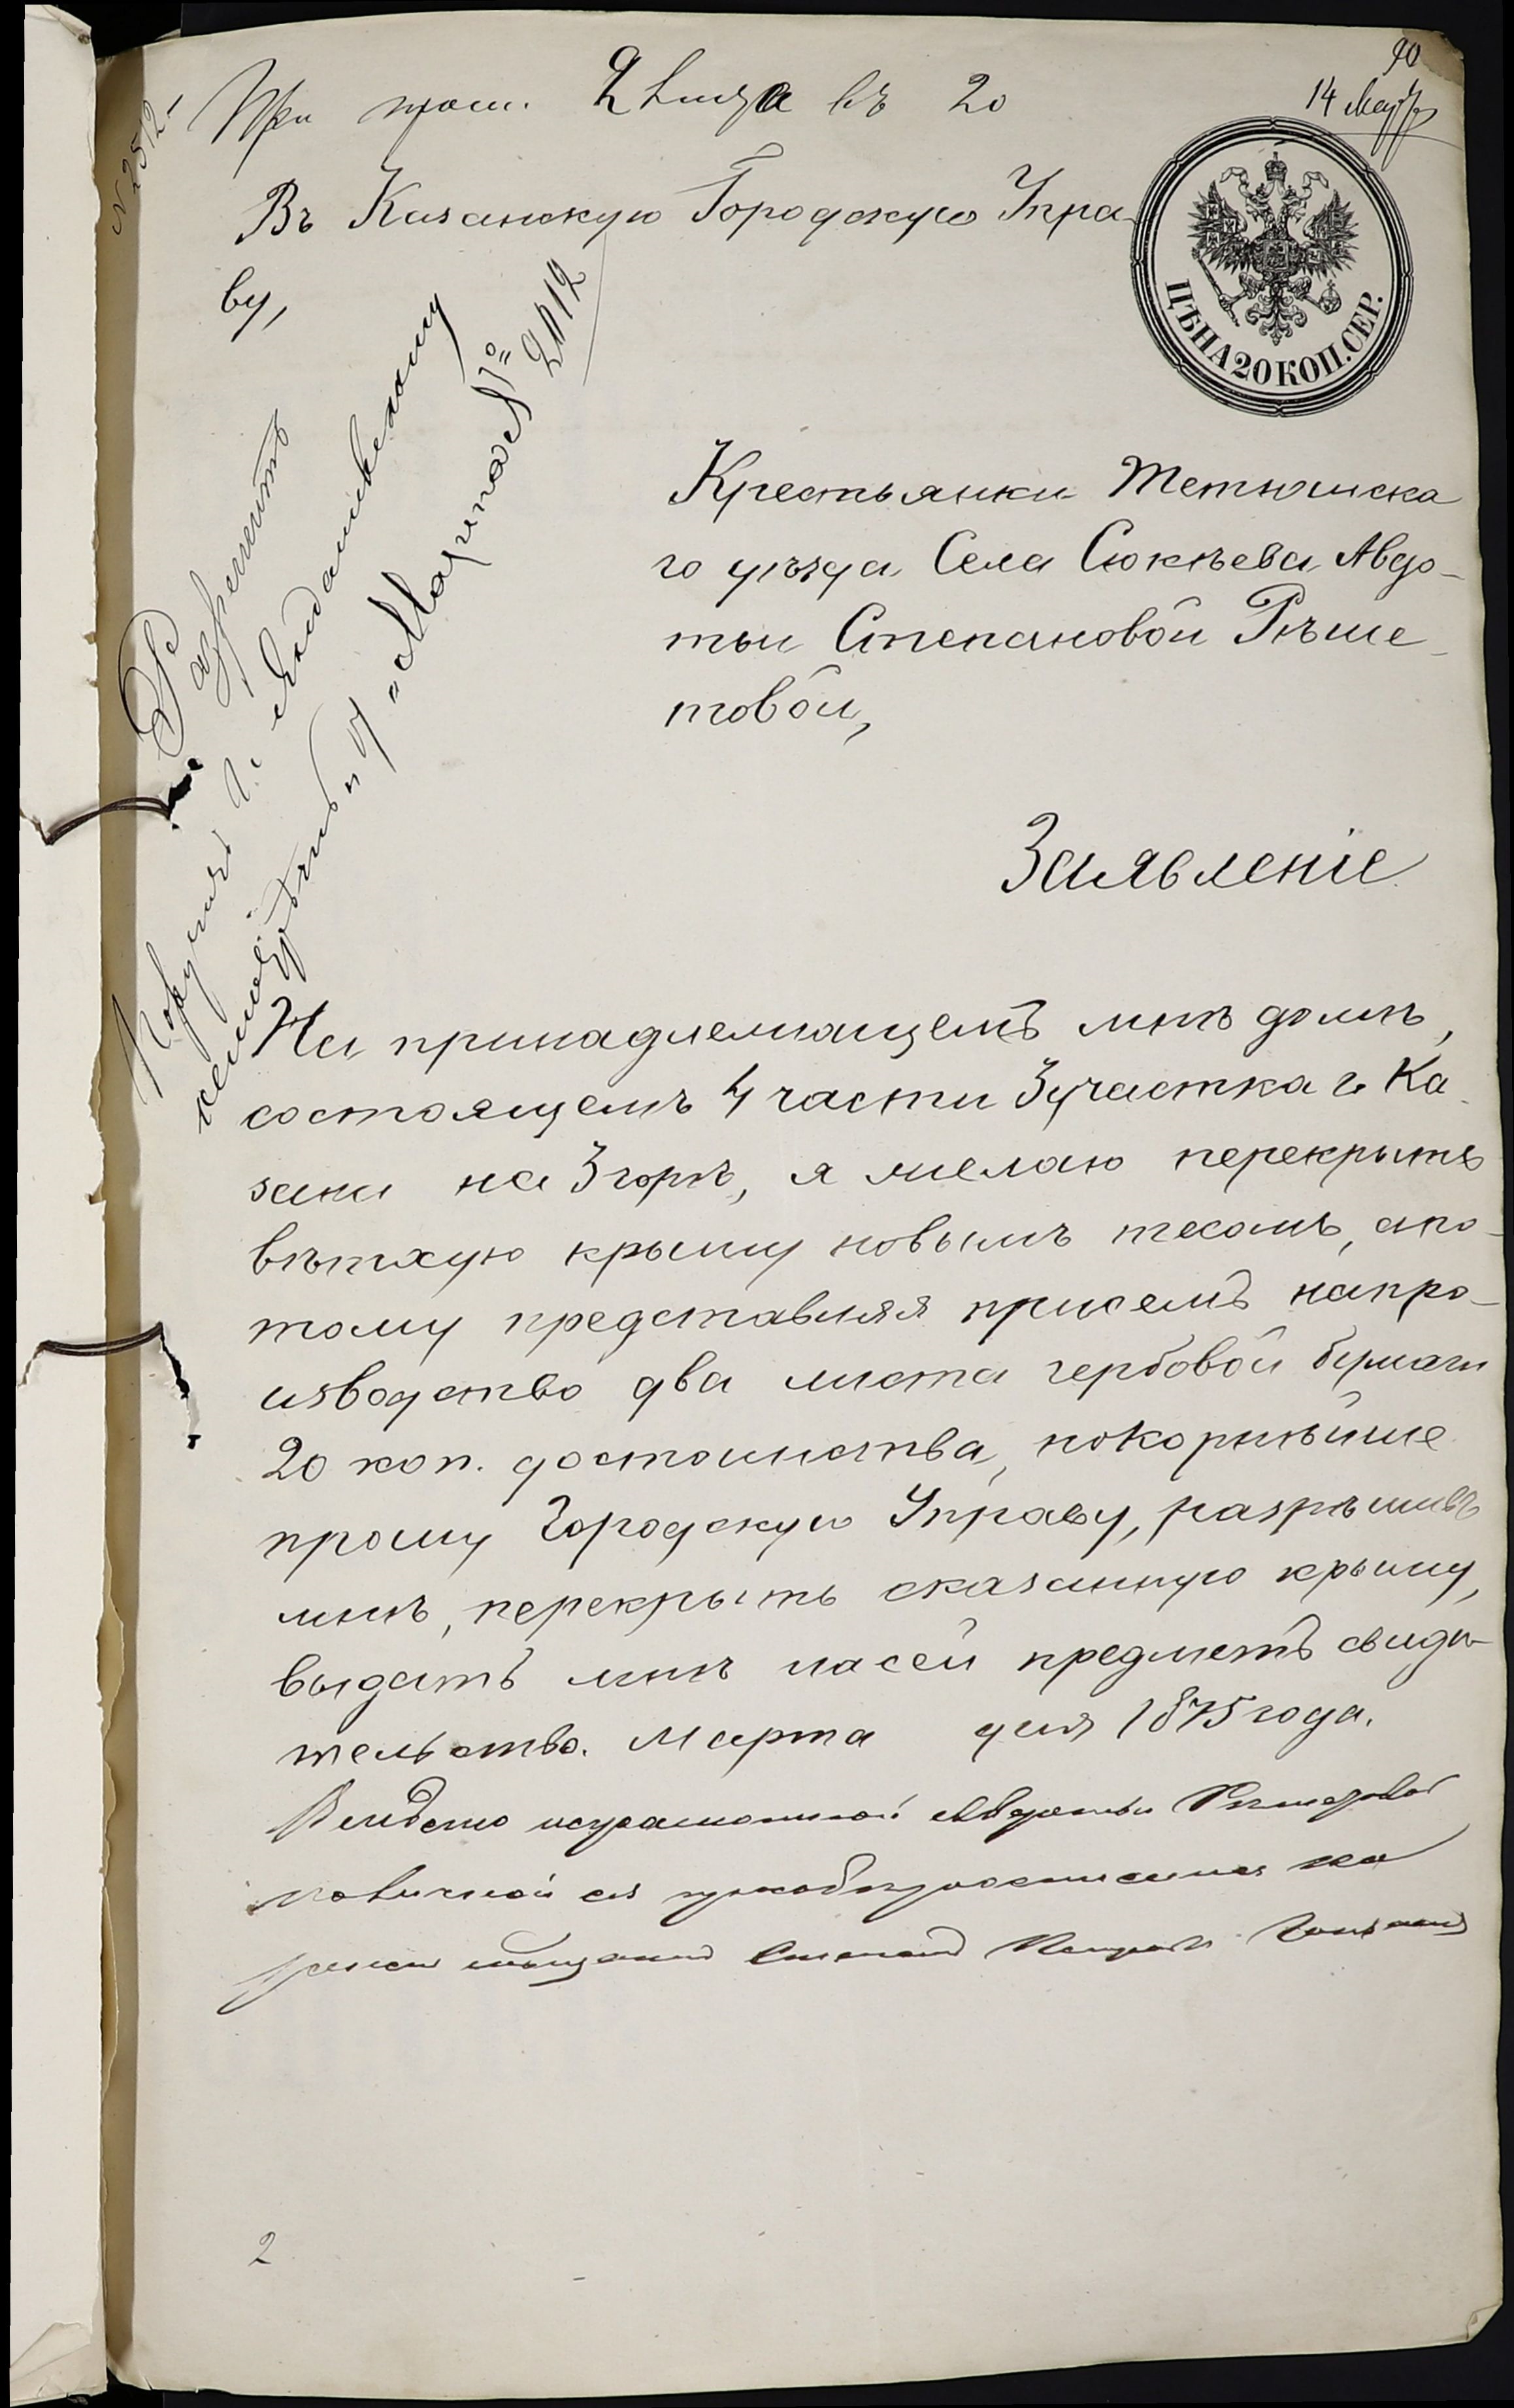 90
14 Марта
№ 2512
При прош. 2 листа въ 20
Въ Казанскую Городскую Упра-
ву,
ЦѢНА 20 КОП. СЕР.
Разрешить
Марта № 2012
Крестьянки Тетюшска
го уѣзда Села Сюкѣева Авдо-
тьи Степановой Рѣше-
товой,
Заявленіе
На принадлежащемъ мнѣ домѣ,
состоящемъ 4 части 3 участка г. Ка-
зани на 3 горѣ, я желаю перекрыть
вѣтхую крышу новымъ тесомъ, а по-
тому представляя присемъ напро-
изводство два листа гербовой бумаги
20 коп. достоинства, покорнѣйше
прошу Городскую Управу, разрѣшивъ
мнѣ, перекрыть сказанную крышу,
выдать мнѣ насей предметъ свидѣ-
тельство. Марта дня 1875 года.
Вмѣсто неграмотной Авдотьи Рѣшетовой
поличной ея прозьбѣ росписался Ка
мѣщанинъ Степанъ
2